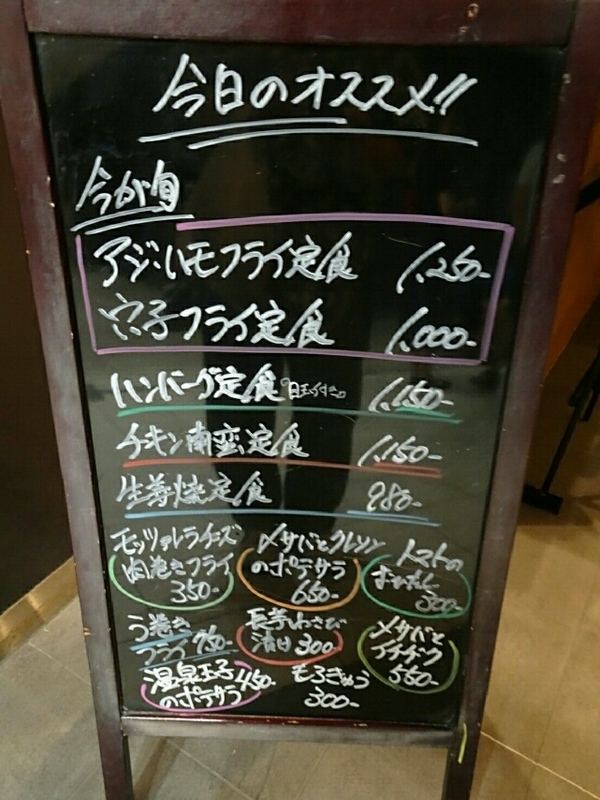 今日のオススメ!!
今が旬
アジ・ハモフライ定食 1,250-
穴子フライ定食 1,000-
ハンバーグ定食 目玉付き 1,150-
チキン南蛮定食 1,150-
生姜焼定食 980-
モッツァレラチーズ
肉巻きフライ
350-
〆サバとクレソン
のポテサラ
650-
トマトの
おひたし
300-
う巻き
フライ 750-
長芋わさび
漬け 300-
〆サバと
イチヂク
550-
温泉玉子 450-
のポテサラ
もろきゅう
300-